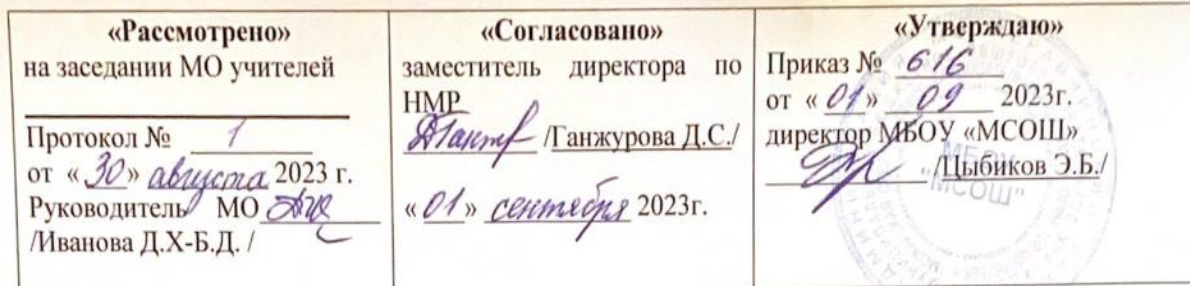 «Рассмотрено»
на заседании МО учителей
Протокол № 1
от «30» августа 2023 г.
Руководитель МО
/Иванова Д.Х-Б.Д. /
«Согласовано»
заместитель директора по
НМР
/Ганжурова Д.С./
«01» сентября 2023г.
«Утверждаю»
Приказ № 616
от «01» 09 2023г.
директор МБОУ «МСОШ»
/Цыбиков Э.Б./
МБОУ
"МСОШ"